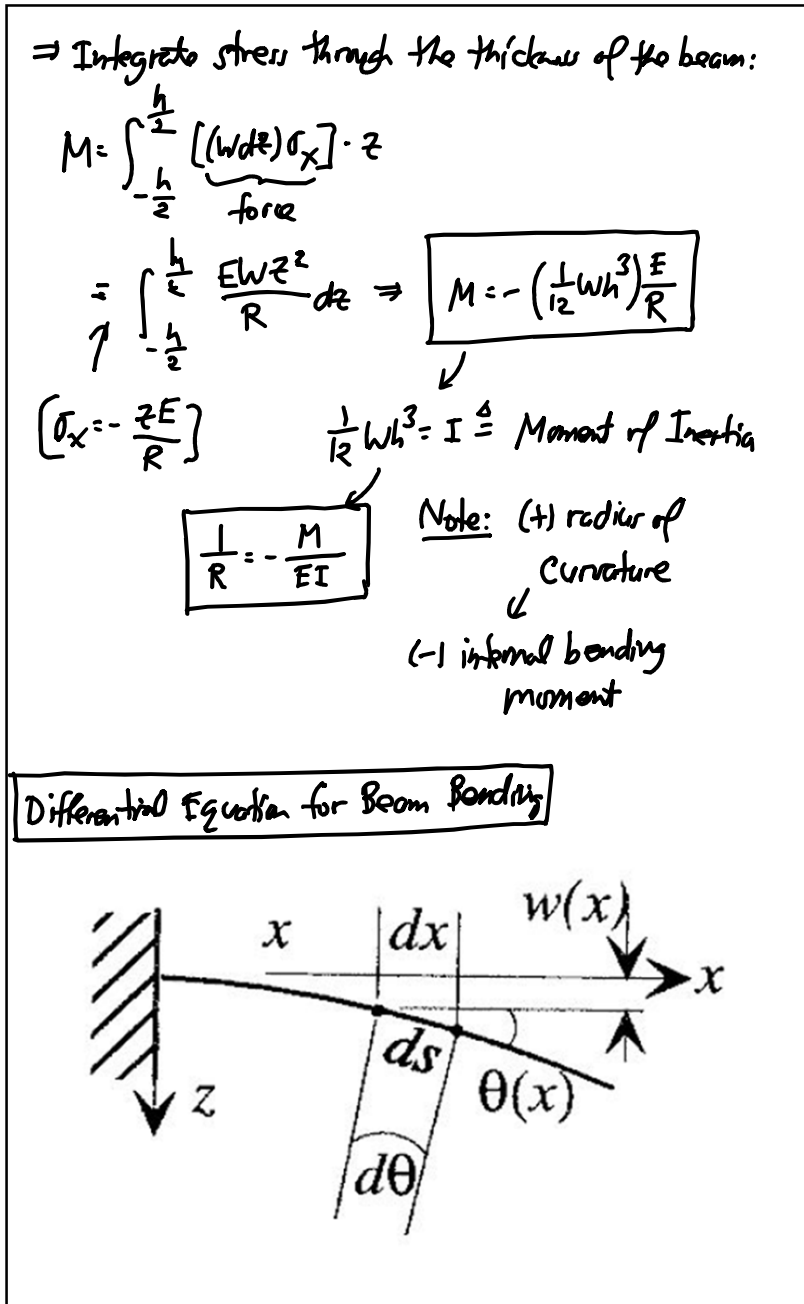 ⇒ Integrate stress through the thickness of the beam:
M = ∫_{-h/2}^{h/2} [(Wdz)σ_x] · z
force
= ∫_{-h/2}^{h/2} EWz²/R dz ⇒ M = -(1/12 Wh³) E/R
[σ_x = - zE/R]
1/12 Wh³ = I ≜ Moment of Inertia
1/R = - M/EI
Note: (+) radius of
Curvature
(-) internal bending
moment
Differential Equation for Beam Bending
w(x)
x dx
x
ds
θ(x)
z
dθ